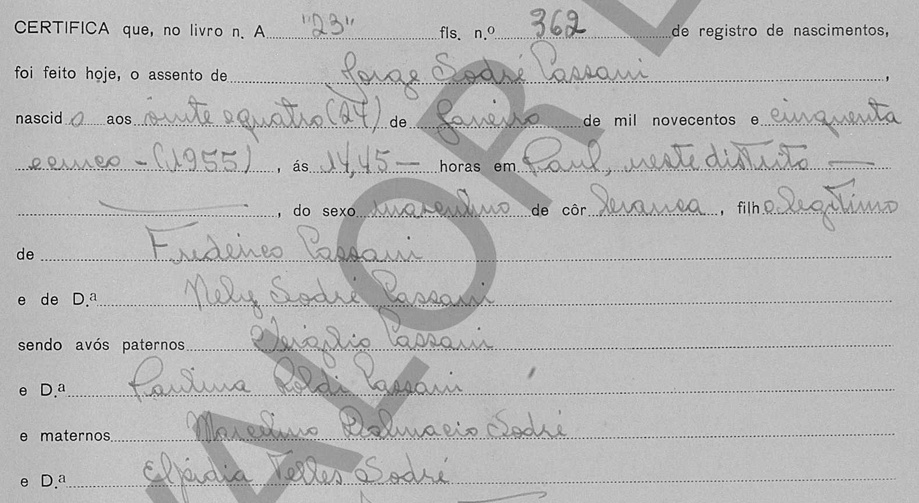 CERTIFICA que, no livro n. A "23" fls. n.º 362 de registro de nascimentos,
foi feito hoje, o assento de Jorge Sodré Passani,
nascido aos vinte e quatro (24) de Janeiro de mil novecentos e cinquenta
e cinco - (1955), ás 14,45 — horas em Paul, neste distrito —
, do sexo masculino de côr branca, filho legítimo
de Frederico Passani
e de D.ª Nely Sodré Passani
sendo avós paternos Virgilio Passani
e D.ª Paulina Poldi Passani
e maternos Marcelino Sodré
e D.ª Elpidia Telles Sodré
VALOR